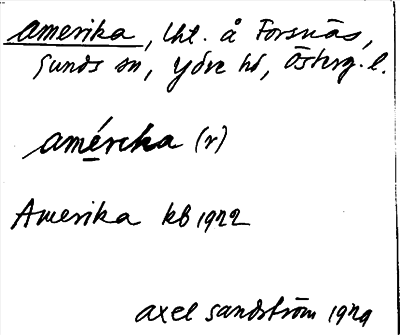 Amerika, Lht. å Forsnäs,
Sunds sn, Ydre hd, Österg. l.
amérika (r)
Amerika kb 1922
Axel Sandström 1929